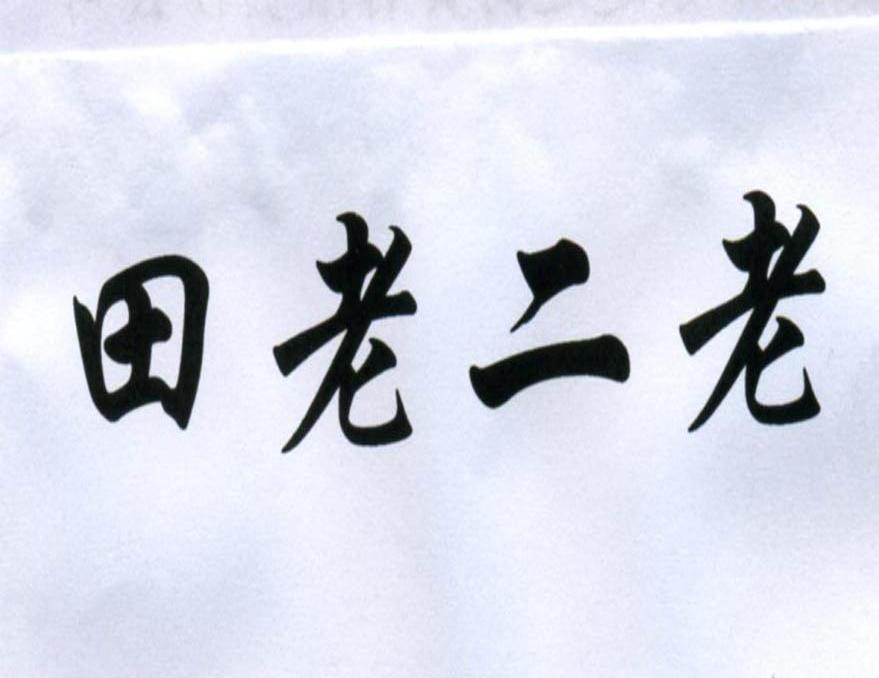 田老二老